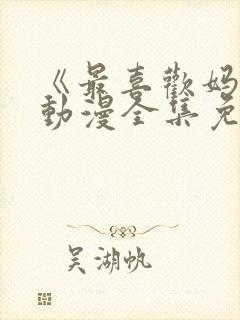 《最喜歡媽
動漫全集免
吳湖帆